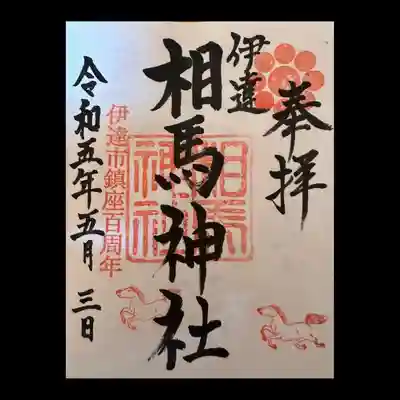 奉拝
伊達
相馬神社
相馬
神社
伊達市鎮座百周年
令和五年五月三日